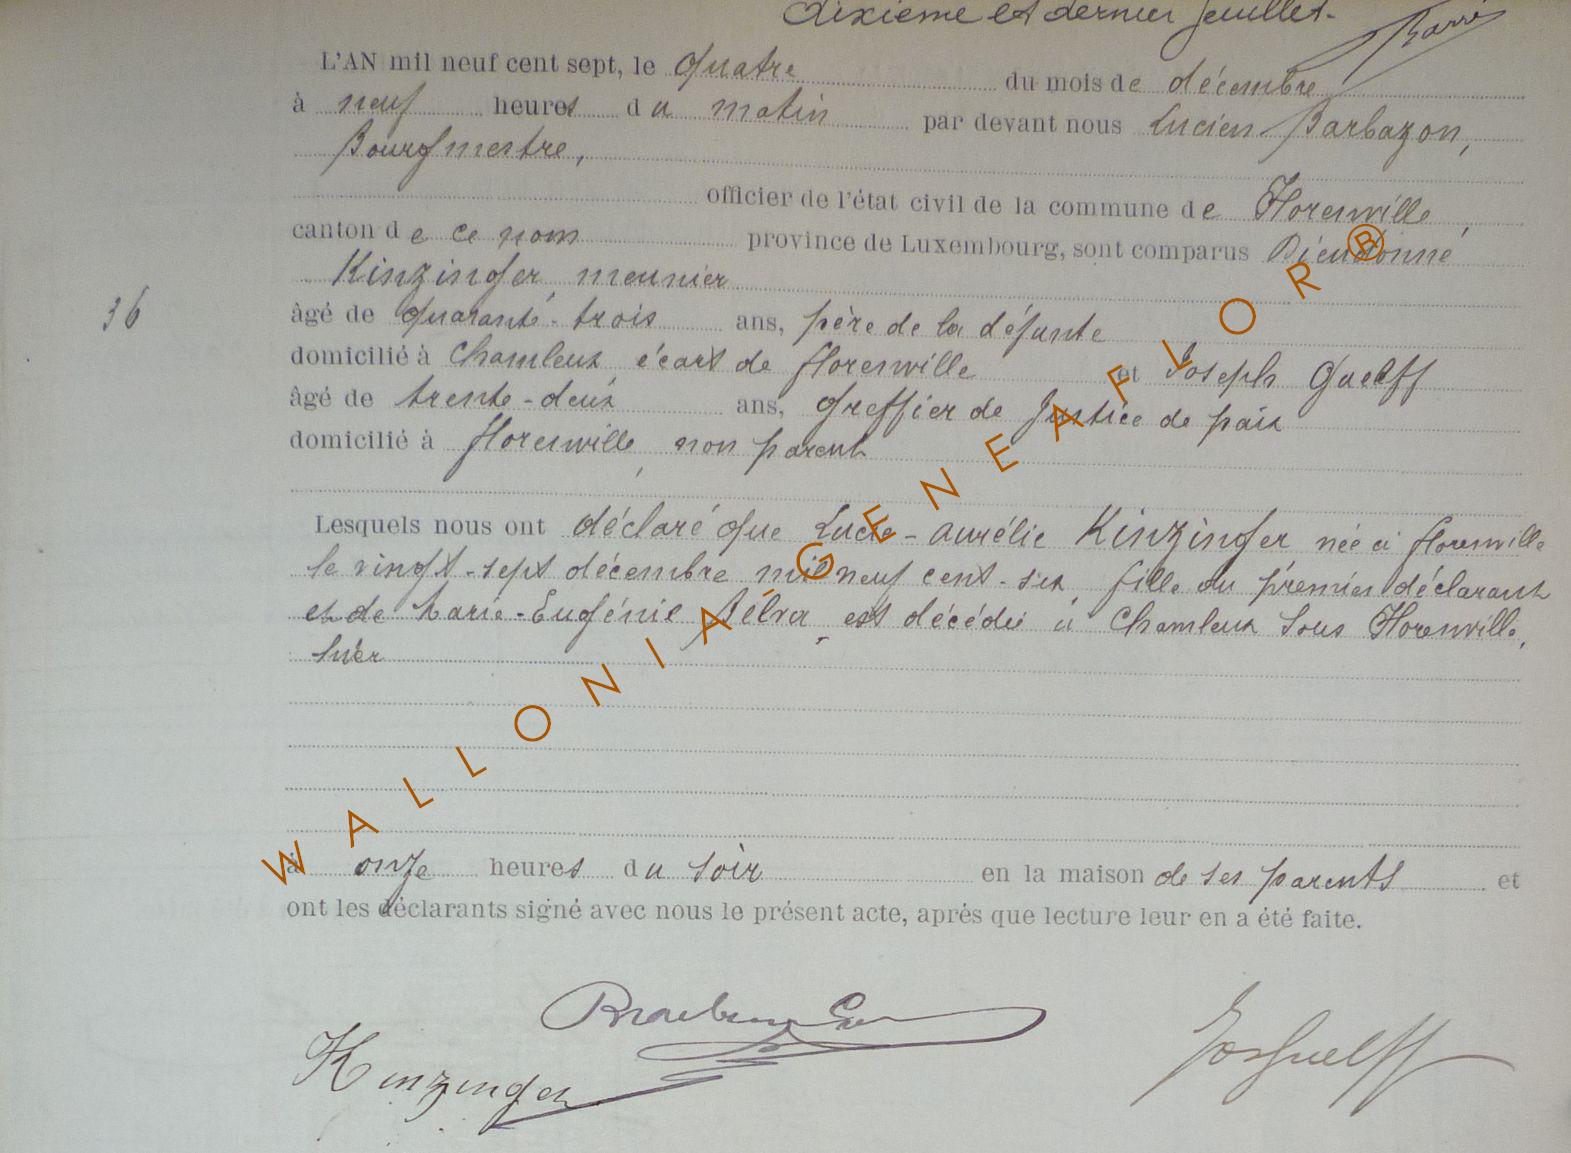 dixième et dernier feuillet.
L'AN mil neuf cent sept, le quatre du mois de décembre
à neuf heures du matin par devant nous Lucien Barbazon,
Bourgmestre,
officier de l'état civil de la commune de Florenville,
canton de ce nom province de Luxembourg, sont comparus Dieudonné
Kinzinger, meunier
36
âgé de quarante-trois ans, père de la défunte
domicilié à Chameleux écart de florenville et Joseph Guelff
âgé de trente-deux ans, greffier de Justice de paix
domicilié à florenville, non parent
Lesquels nous ont déclaré que Lucie-aurélie Kinzinger née à florenville
le vingt-sept décembre mil neuf cent-six, fille du premier déclarant
et de Marie-Eugénie Bélva est décédée à Chameleux sous Florenville,
hier
à onze heures du soir en la maison de ses parents et
ont les déclarants signé avec nous le présent acte, après que lecture leur en a été faite.
Kinzinger
Jos Guelff
WALLONIA GENEAFLOR ®